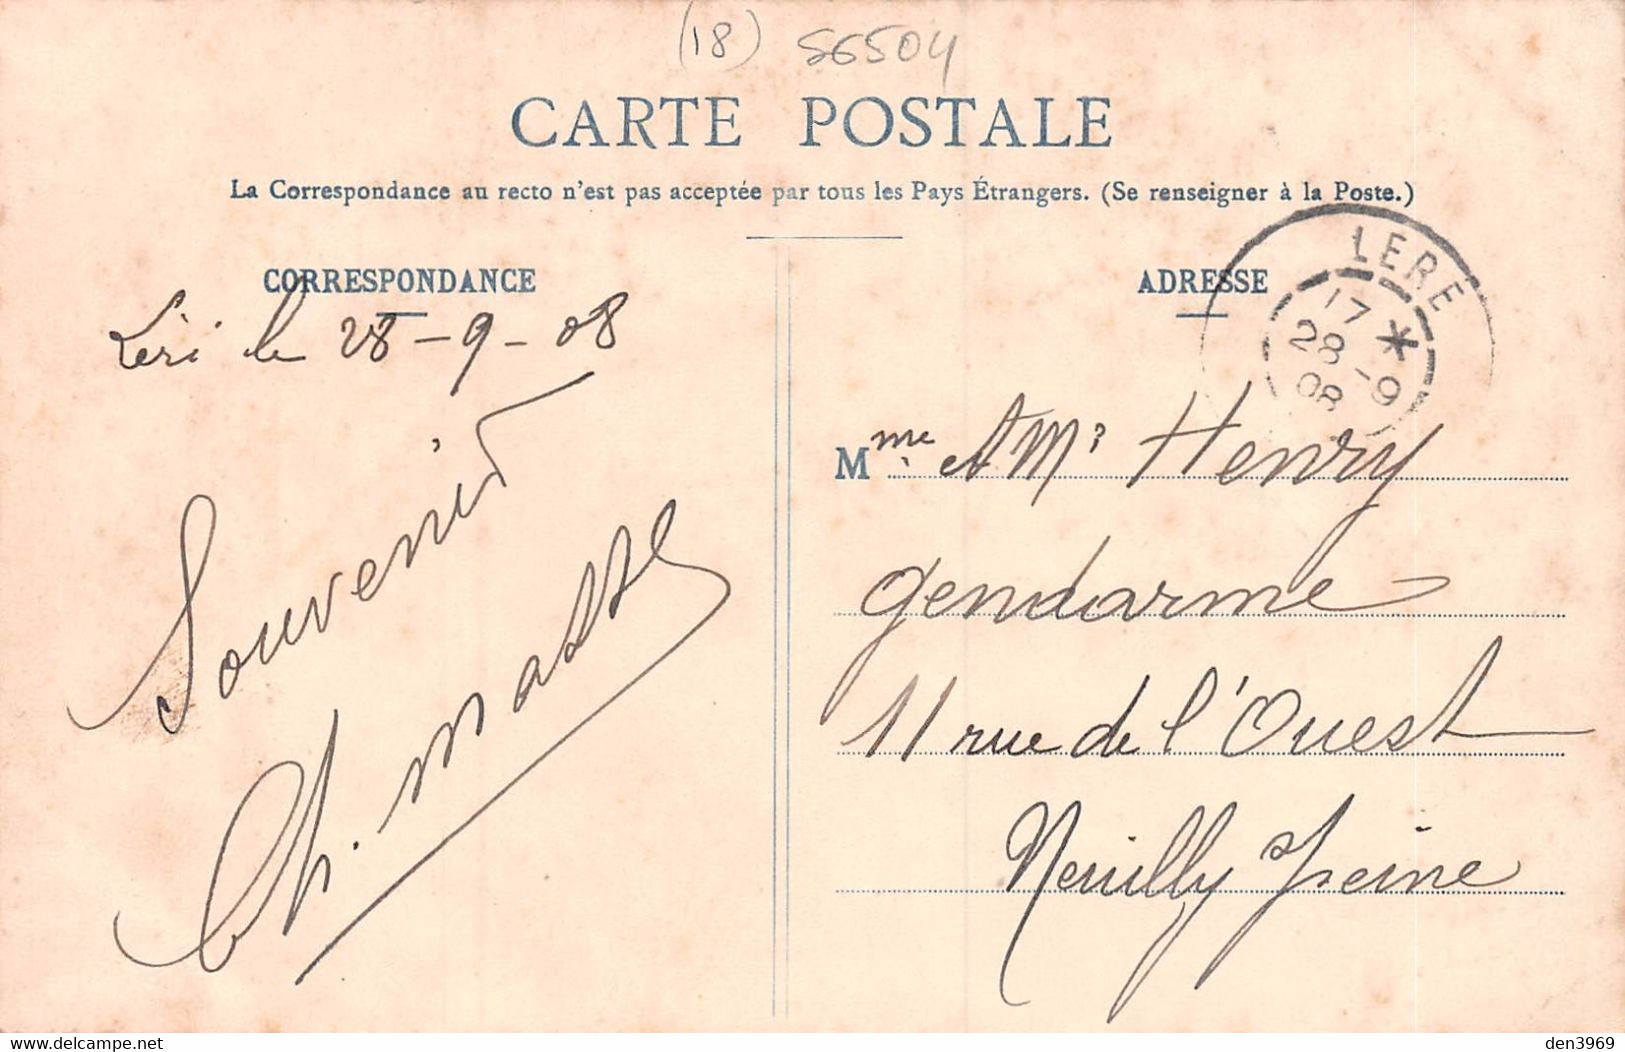 (18) S6504
CARTE POSTALE
La Correspondance au recto n'est pas acceptée par tous les Pays Étrangers. (Se renseigner à la Poste.)
CORRESPONDANCE
Léré le 28-9-08
Souvenir
Ch. Masse
ADRESSE
LERE
17 *
28-9
08
Mme AM: Henry
gendarme
11 rue de l'Ouest
Neuilly Seine
www.delcampe.net
den3969